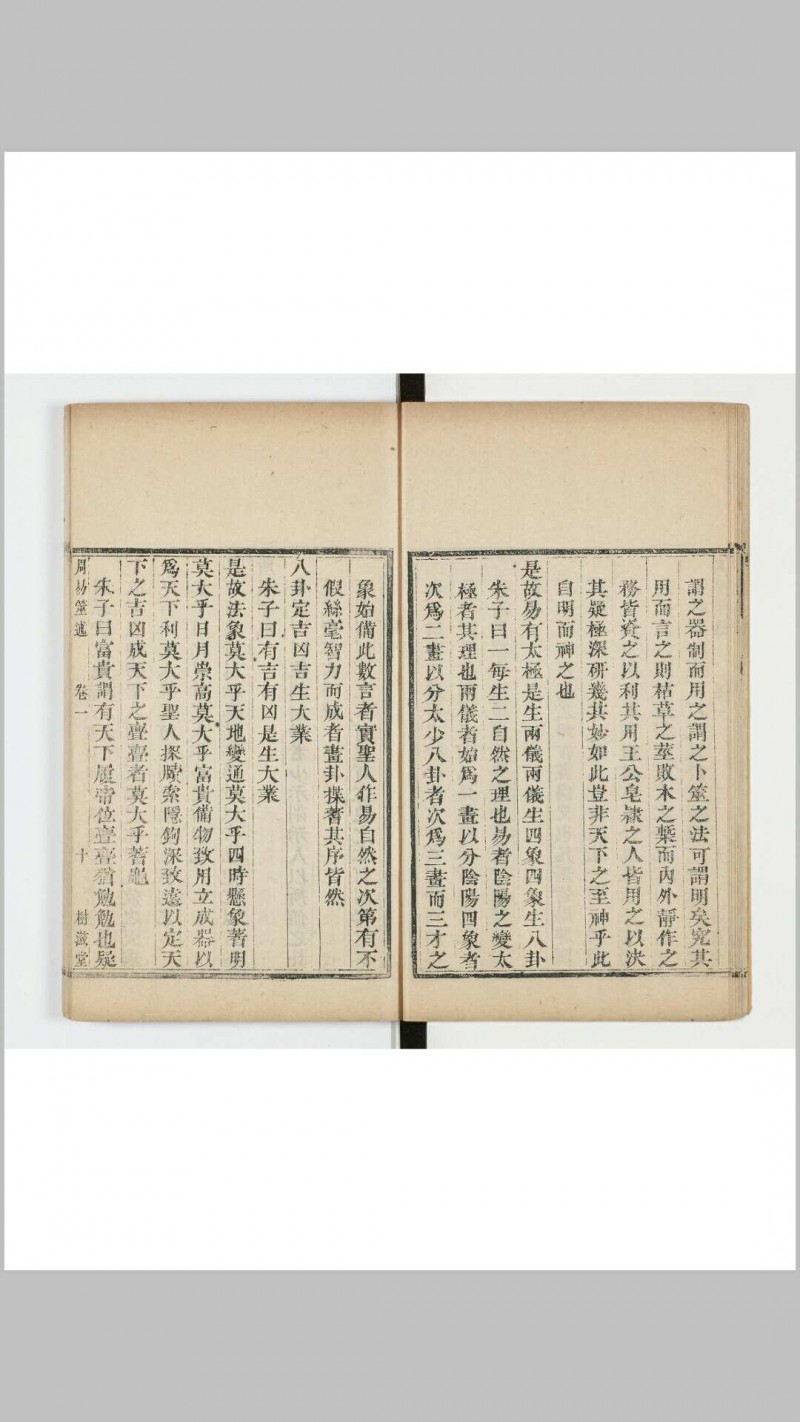 謂之器制而用之謂之卜筮之法可謂明矣究其
用而言之則枯草之莖敗木之櫱而內外靜作之
務皆資之以利其用王公皂隸之人皆用之以決
其疑極深研幾其妙如此豈非天下之至神乎此
自明而神之也
是故易有太極是生兩儀兩儀生四象四象生八卦
朱子曰一每生二自然之理也易者陰陽之變太
極者其理也兩儀者始爲一畫以分陰陽四象者
次爲二畫以分太少八卦者次爲三畫而三才之
象始備此數言者實聖人作易自然之次第有不
假絲毫智力而成者畫卦揲蓍其序皆然
八卦定吉凶吉生大業
朱子曰有吉有凶是生大業
是故法象莫大乎天地變通莫大乎四時懸象著明
莫大乎日月崇高莫大乎富貴備物致用立成器以
爲天下利莫大乎聖人探賾索隱鉤深致遠以定天
下之吉凶成天下之亹亹者莫大乎蓍龜
朱子曰富貴謂有天下履帝位亹亹猶勉勉也疑
周易筮述 卷一 十 樹滋堂